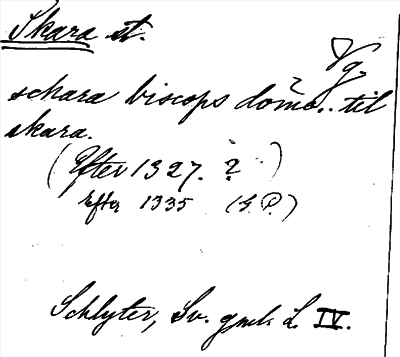 Skara st.
Vg.
schara biscops döme. til
skara.
(Efter 1327. ?)
Efter 1335 (G.P.)
Schlyter, Sv. gml. L. IV.